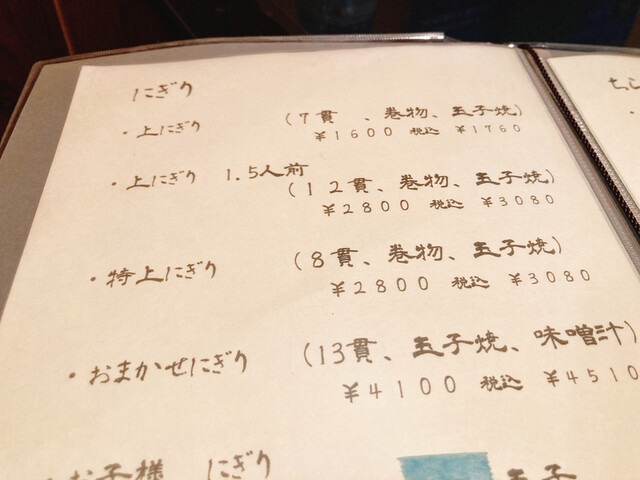 にぎり
・上にぎり (7貫、巻物、玉子焼)
¥1600 税込 ¥1760
・上にぎり 1.5人前
(12貫、巻物、玉子焼)
¥2800 税込 ¥3080
・特上にぎり (8貫、巻物、玉子焼)
¥2800 税込 ¥3080
・おまかせにぎり (13貫、玉子焼、味噌汁)
¥4100 税込 ¥4510
・お子様 にぎり 玉子
ちら